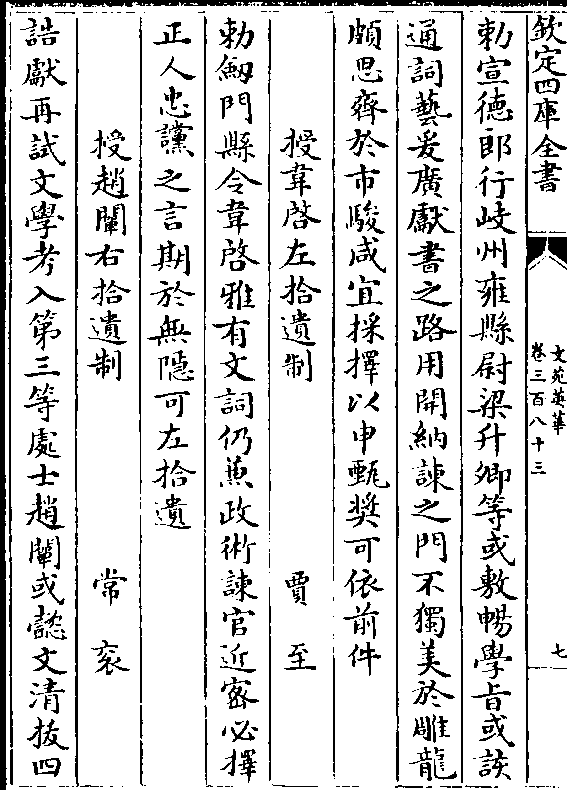 欽定四庫全書
文苑英華
卷三百八十三
七
勅宣德郎行岐州雍縣尉梁升卿等或敷暢學旨或該
通詞藝爰廣獻書之路用開納諫之門不獨美於雕龍
頗思齊於市駿咸宜採擇以申甄奬可依前件
授韋啓左拾遺制 賈至
勅劒門縣令韋啓雅有文詞仍兼政術諫官近宻必擇
正人忠讜之言期於無隠可左拾遺
授趙闡右拾遺制 常衮
誥獻再試文學考入第三等處士趙闡或懿文清拔四